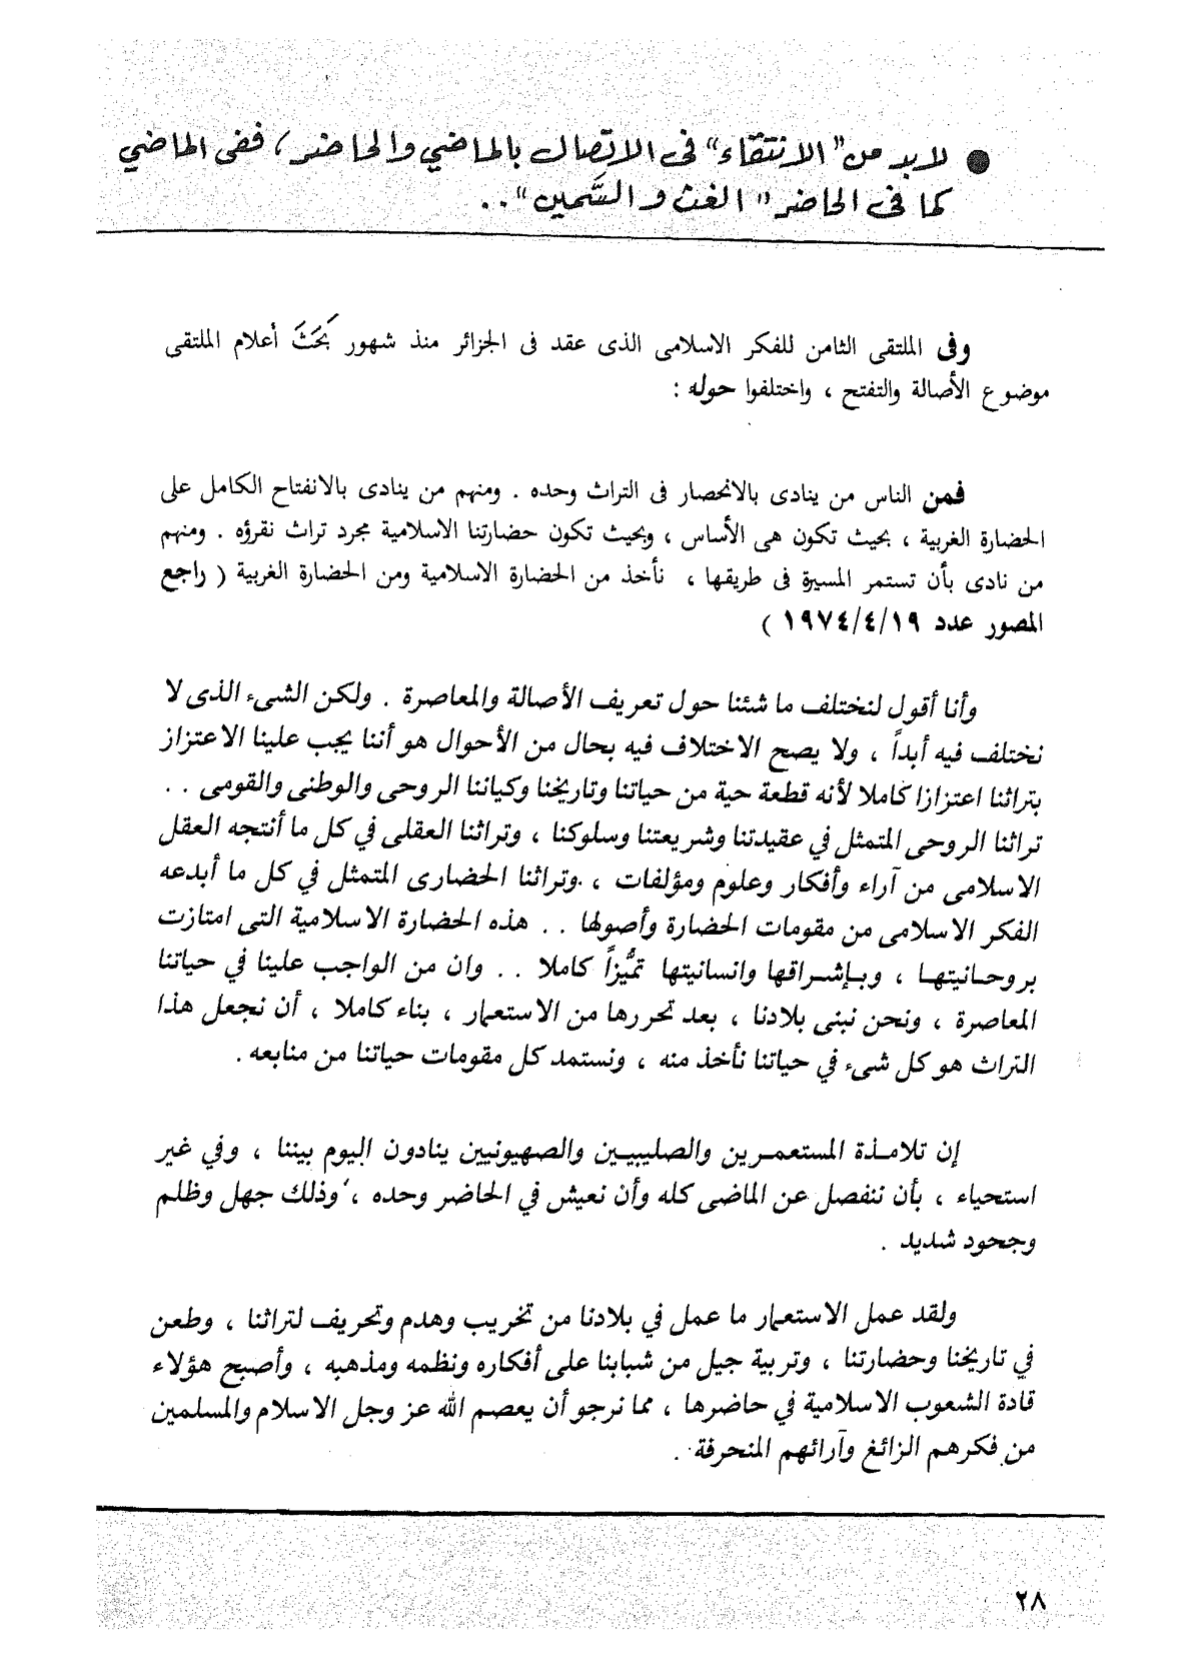 ● لابد من "الانتقاء" فى الاتصال بالماضي والحاضر، ففى الماضي
كما فى الحاضر "الغث والسَّمين"..
وفى الملتقى الثامن للفكر الاسلامى الذى عقد فى الجزائر منذ شهور بَحَثَ أعلام الملتقى
موضوع الأصالة والتفتح ، واختلفوا حوله :
فمن الناس من ينادى بالانحصار فى التراث وحده . ومنهم من ينادى بالانفتاح الكامل على
الحضارة الغربية ، بحيث تكون هى الأساس ، وبحيث تكون حضارتنا الاسلامية مجرد تراث نقرؤه . ومنهم
من نادى بأن تستمر المسيرة فى طريقها ، نأخذ من الحضارة الاسلامية ومن الحضارة الغربية ( راجع
المصور عدد ١٩/٤/١٩٧٤ )
وأنا أقول لنختلف ما شئنا حول تعريف الأصالة والمعاصرة . ولكن الشىء الذى لا
نختلف فيه أبداً ، ولا يصح الاختلاف فيه بحال من الأحوال هو أننا يجب علينا الاعتزاز
بتراثنا اعتزازا كاملا لأنه قطعة حية من حياتنا وتاريخنا وكياننا الروحى والوطنى والقومى . .
تراثنا الروحى المتمثل في عقيدتنا وشريعتنا وسلوكنا ، وتراثنا العقلى في كل ما أنتجه العقل
الاسلامى من آراء وأفكار وعلوم ومؤلفات ، وتراثنا الحضارى المتمثل في كل ما أبدعه
الفكر الاسلامى من مقومات الحضارة وأصولها . . هذه الحضارة الاسلامية التى امتازت
بروحـانيتهـا ، وبـإشـراقها وانسانيتها تميُّزاً كاملا . . وان من الواجب علينا في حياتنا
المعاصرة ، ونحن نبنى بلادنا ، بعد تحررها من الاستعمار ، بناء كاملا ، أن نجعل هذا
التراث هو كل شىء في حياتنا نأخذ منه ، ونستمد كل مقومات حياتنا من منابعه .
إن تلامـذة المستعمـرين والصليبيـين والصهيونيين ينادون اليوم بيننا ، وفي غير
استحياء ، بأن ننفصل عن الماضى كله وأن نعيش في الحاضر وحده ، وذلك جهل وظلم
وجحود شديد .
ولقد عمل الاستعمار ما عمل في بلادنا من تخريب وهدم وتحريف لتراثنا ، وطعن
في تاريخنا وحضارتنا ، وتربية جيل من شبابنا على أفكاره ونظمه ومذهبه ، وأصبح هؤلاء
قادة الشعوب الاسلامية في حاضرها ، مما نرجو أن يعصم الله عز وجل الاسلام والمسلمين
من فكرهم الزائغ وآرائهم المنحرفة .
٢٨